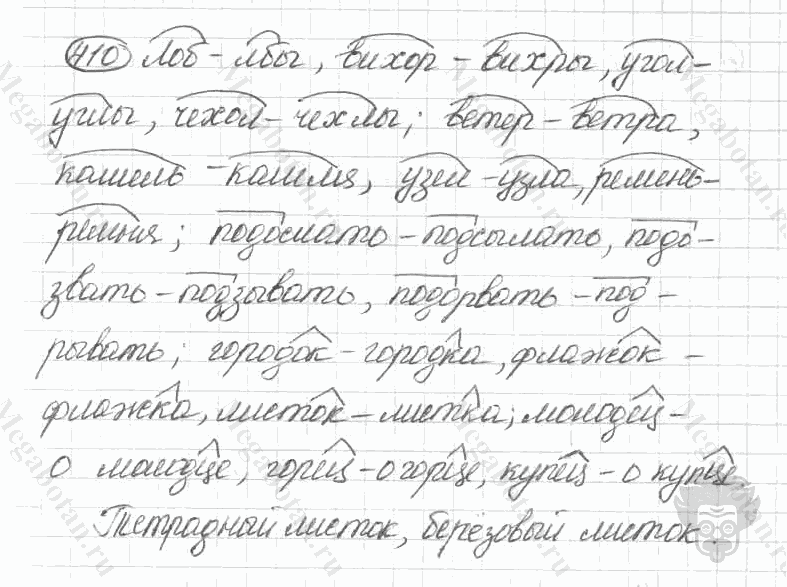 410 Лоб - лбы, вихор - вихры, угол -
углы, чехол - чехлы; ветер - ветра,
кашель - кашля, узел - узла, ремень -
ремня; подослать - подсылать, подо-
звать - подзывать, подорвать - под-
рывать; городок - городка, флажок -
флажка, листок - листка; молодец -
о молодце, горец - о горце, купец - о купце.
Тетрадный листок, берёзовый листок
Megabotan.ru